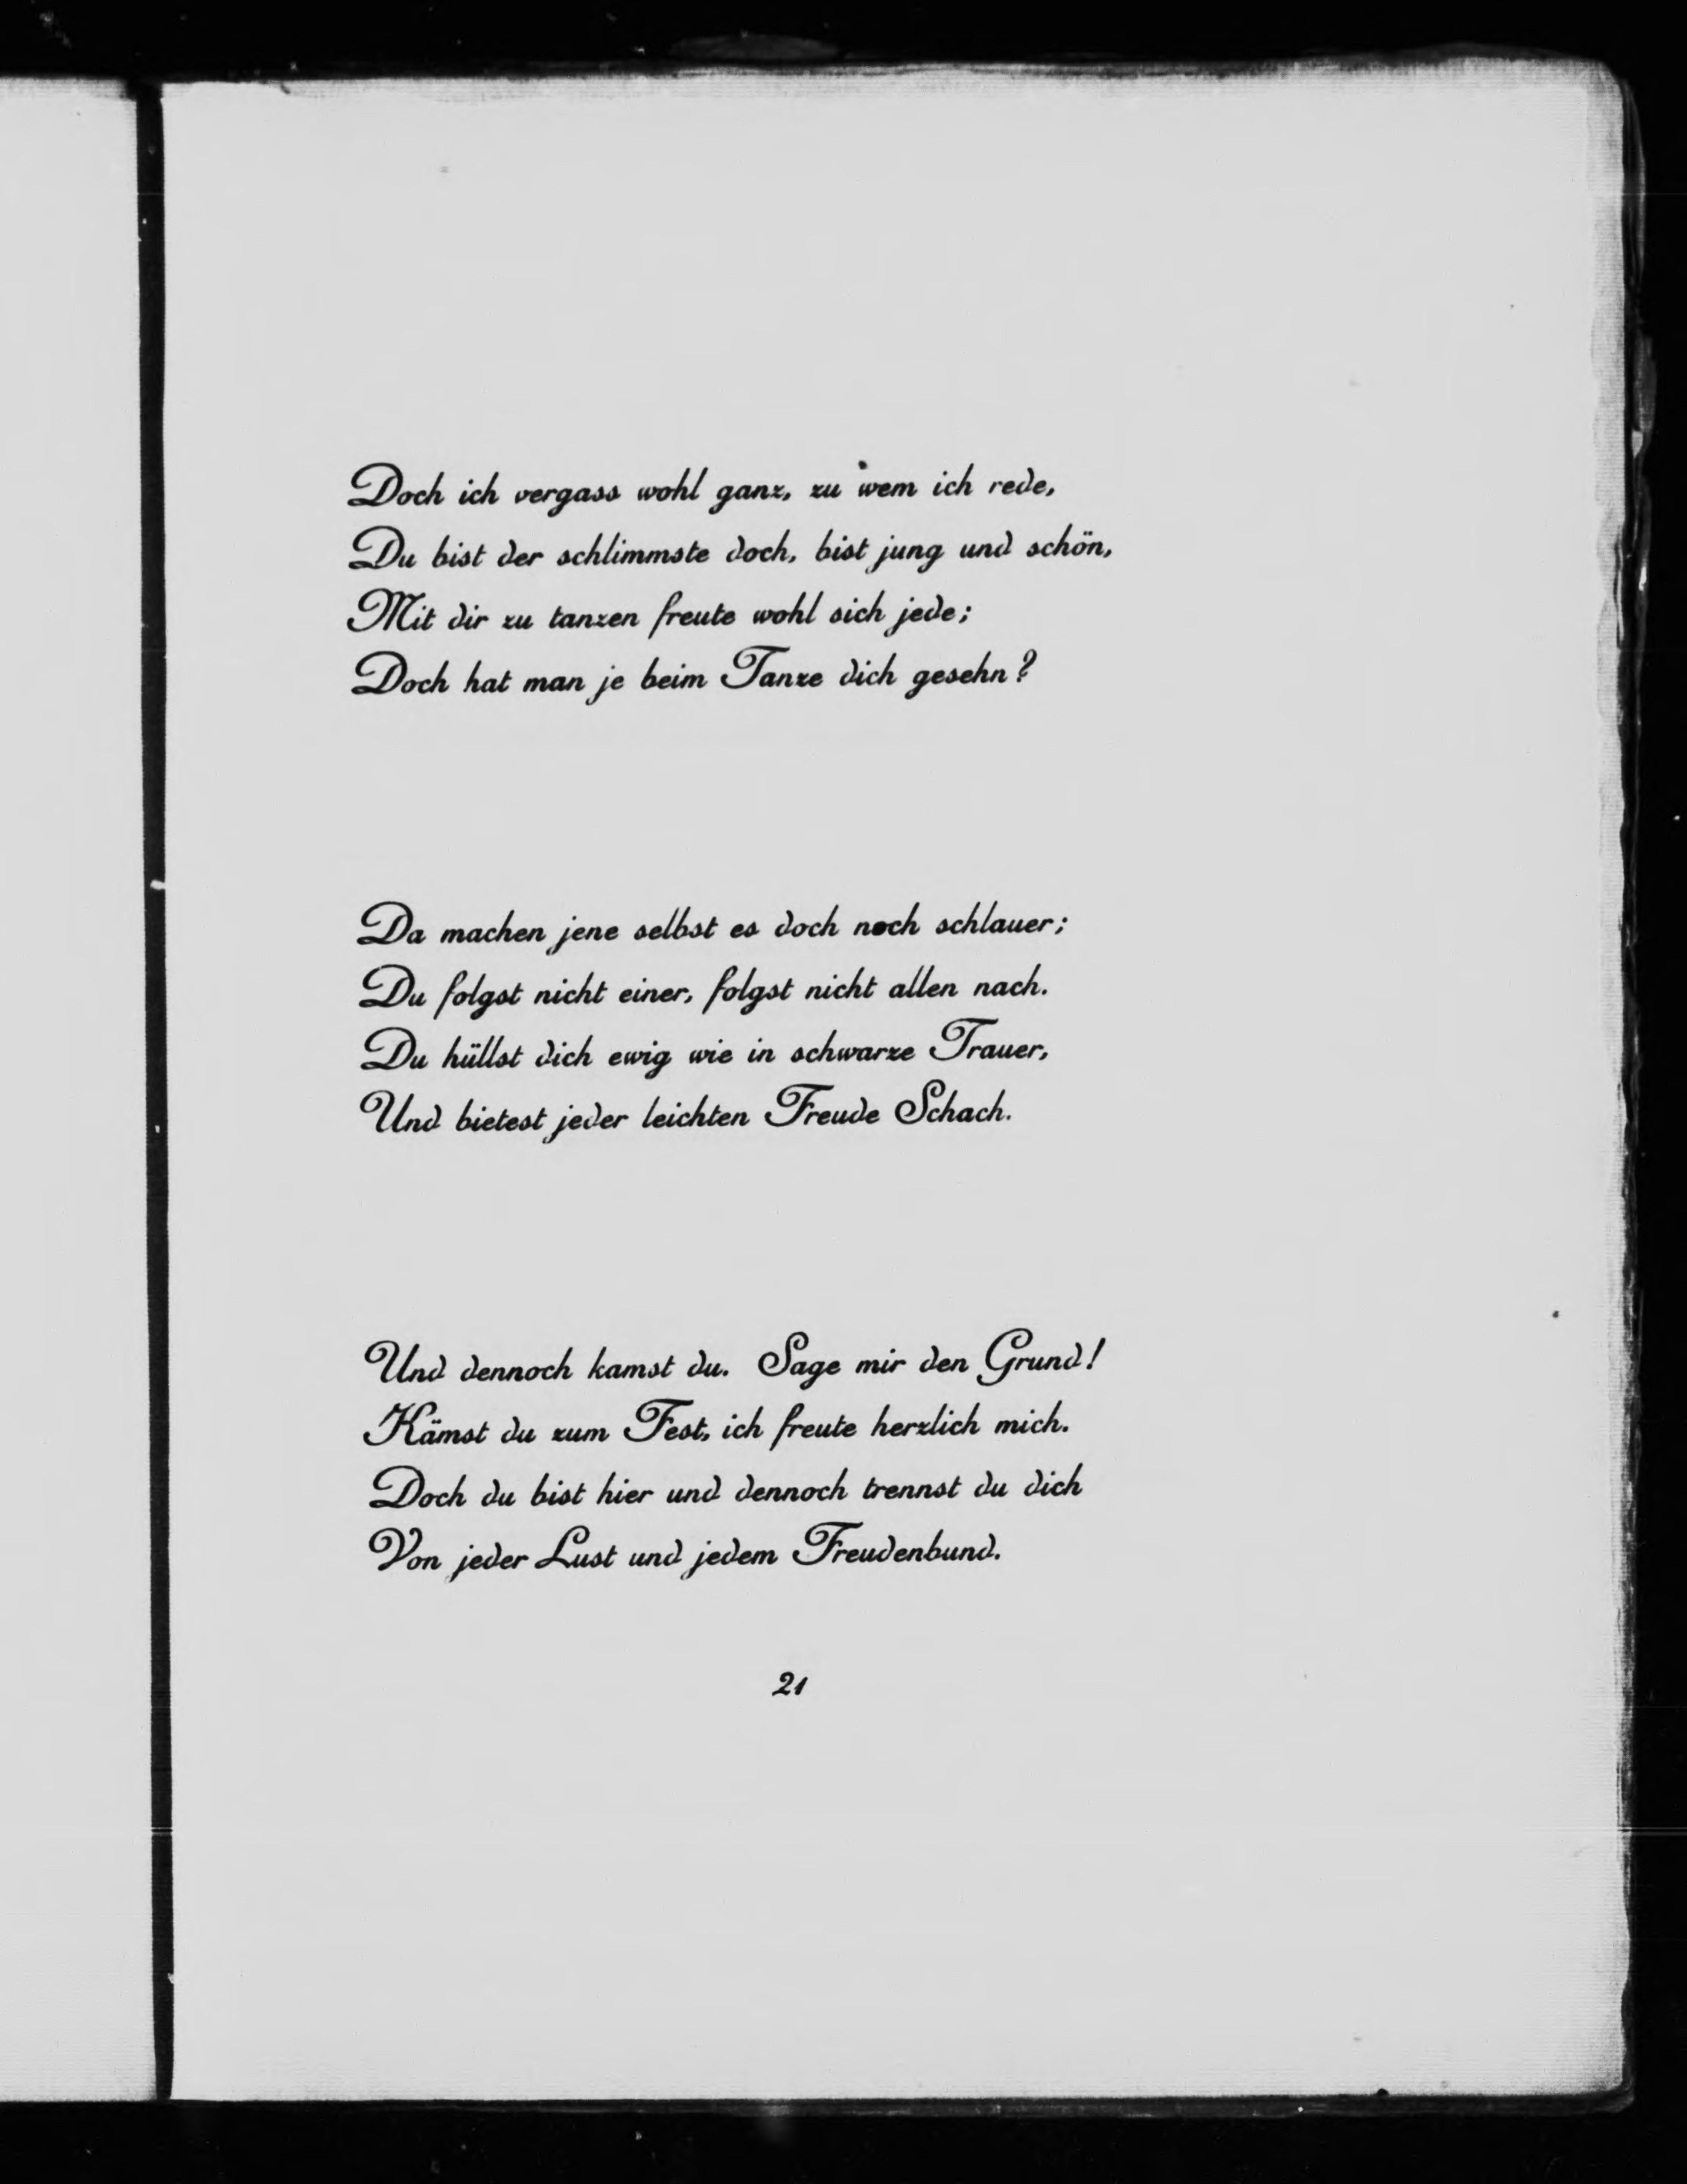 Doch ich vergass wohl ganz, zu wem ich rede,
Du bist der schlimmste doch, bist jung und schön,
Mit dir zu tanzen freute wohl sich jede;
Doch hat man je beim Tanze dich gesehn?
Da machen jene selbst es doch noch schlauer;
Du folgst nicht einer, folgst nicht allen nach.
Du hüllst dich ewig wie in schwarze Trauer,
Und bietest jeder leichten Freude Schach.
Und dennoch kamst du. Sage mir den Grund!
Kämst du zum Fest, ich freute herzlich mich.
Doch du bist hier und dennoch trennst du dich
Von jeder Lust und jedem Freudenbund.
21